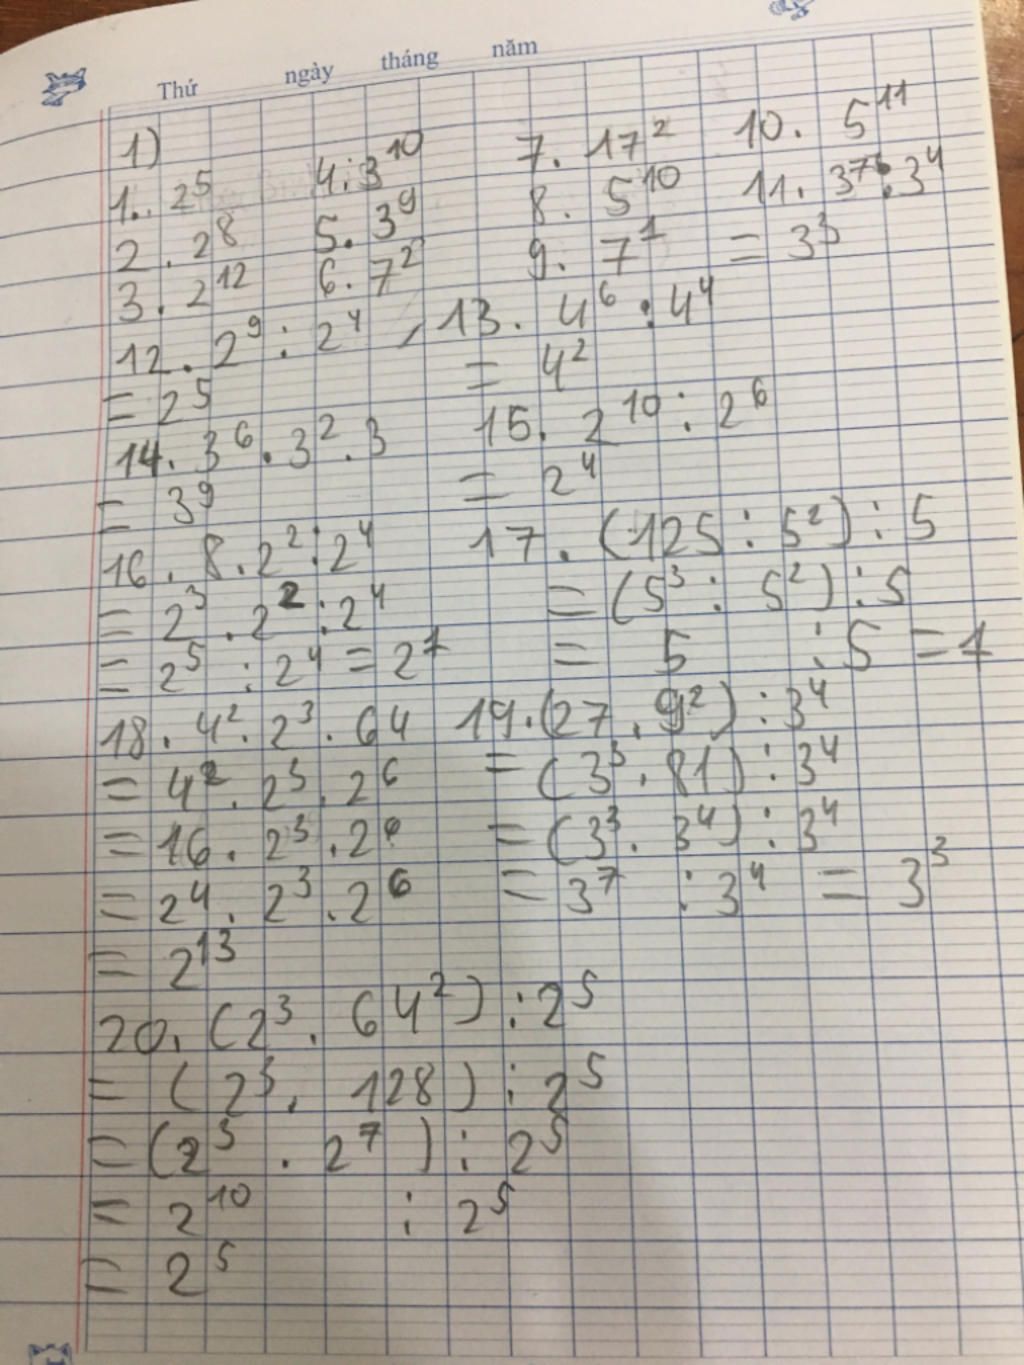 Thứ ngày tháng năm
1)
1. 2⁵ 4. 3¹⁰ 7. 17² 10. 5¹¹
2. 2⁸ 5. 3⁹ 8. 5¹⁰ 11. 3⁷ : 3⁴
3. 2¹² 6. 7² 9. 7¹ = 3³
12. 2⁹ : 2⁴ , 13. 4⁶ : 4⁴
= 2⁵ = 4²
14. 3⁶ . 3² . 3 15. 2¹⁰ : 2⁶
= 3⁹ = 2⁴
16. 8 . 2² : 2⁴ 17. (125 : 5²) : 5
= 2³ . 2² : 2⁴ = (5³ : 5²) : 5
= 2⁵ : 2⁴ = 2¹ = 5 : 5 = 1
18. 4² . 2³ . 64 19. (27 . 9²) : 3⁴
= 4² . 2³ . 2⁶ = (3³ . 81) : 3⁴
= 16 . 2³ . 2⁶ = (3³ . 3⁴) : 3⁴
= 2⁴ . 2³ . 2⁶ = 3⁷ : 3⁴ = 3³
= 2¹³
20. (2³ . 64²) : 2⁵
= (2³ . 128) : 2⁵
= (2³ . 2⁷) : 2⁵
= 2¹⁰ : 2⁵
= 2⁵